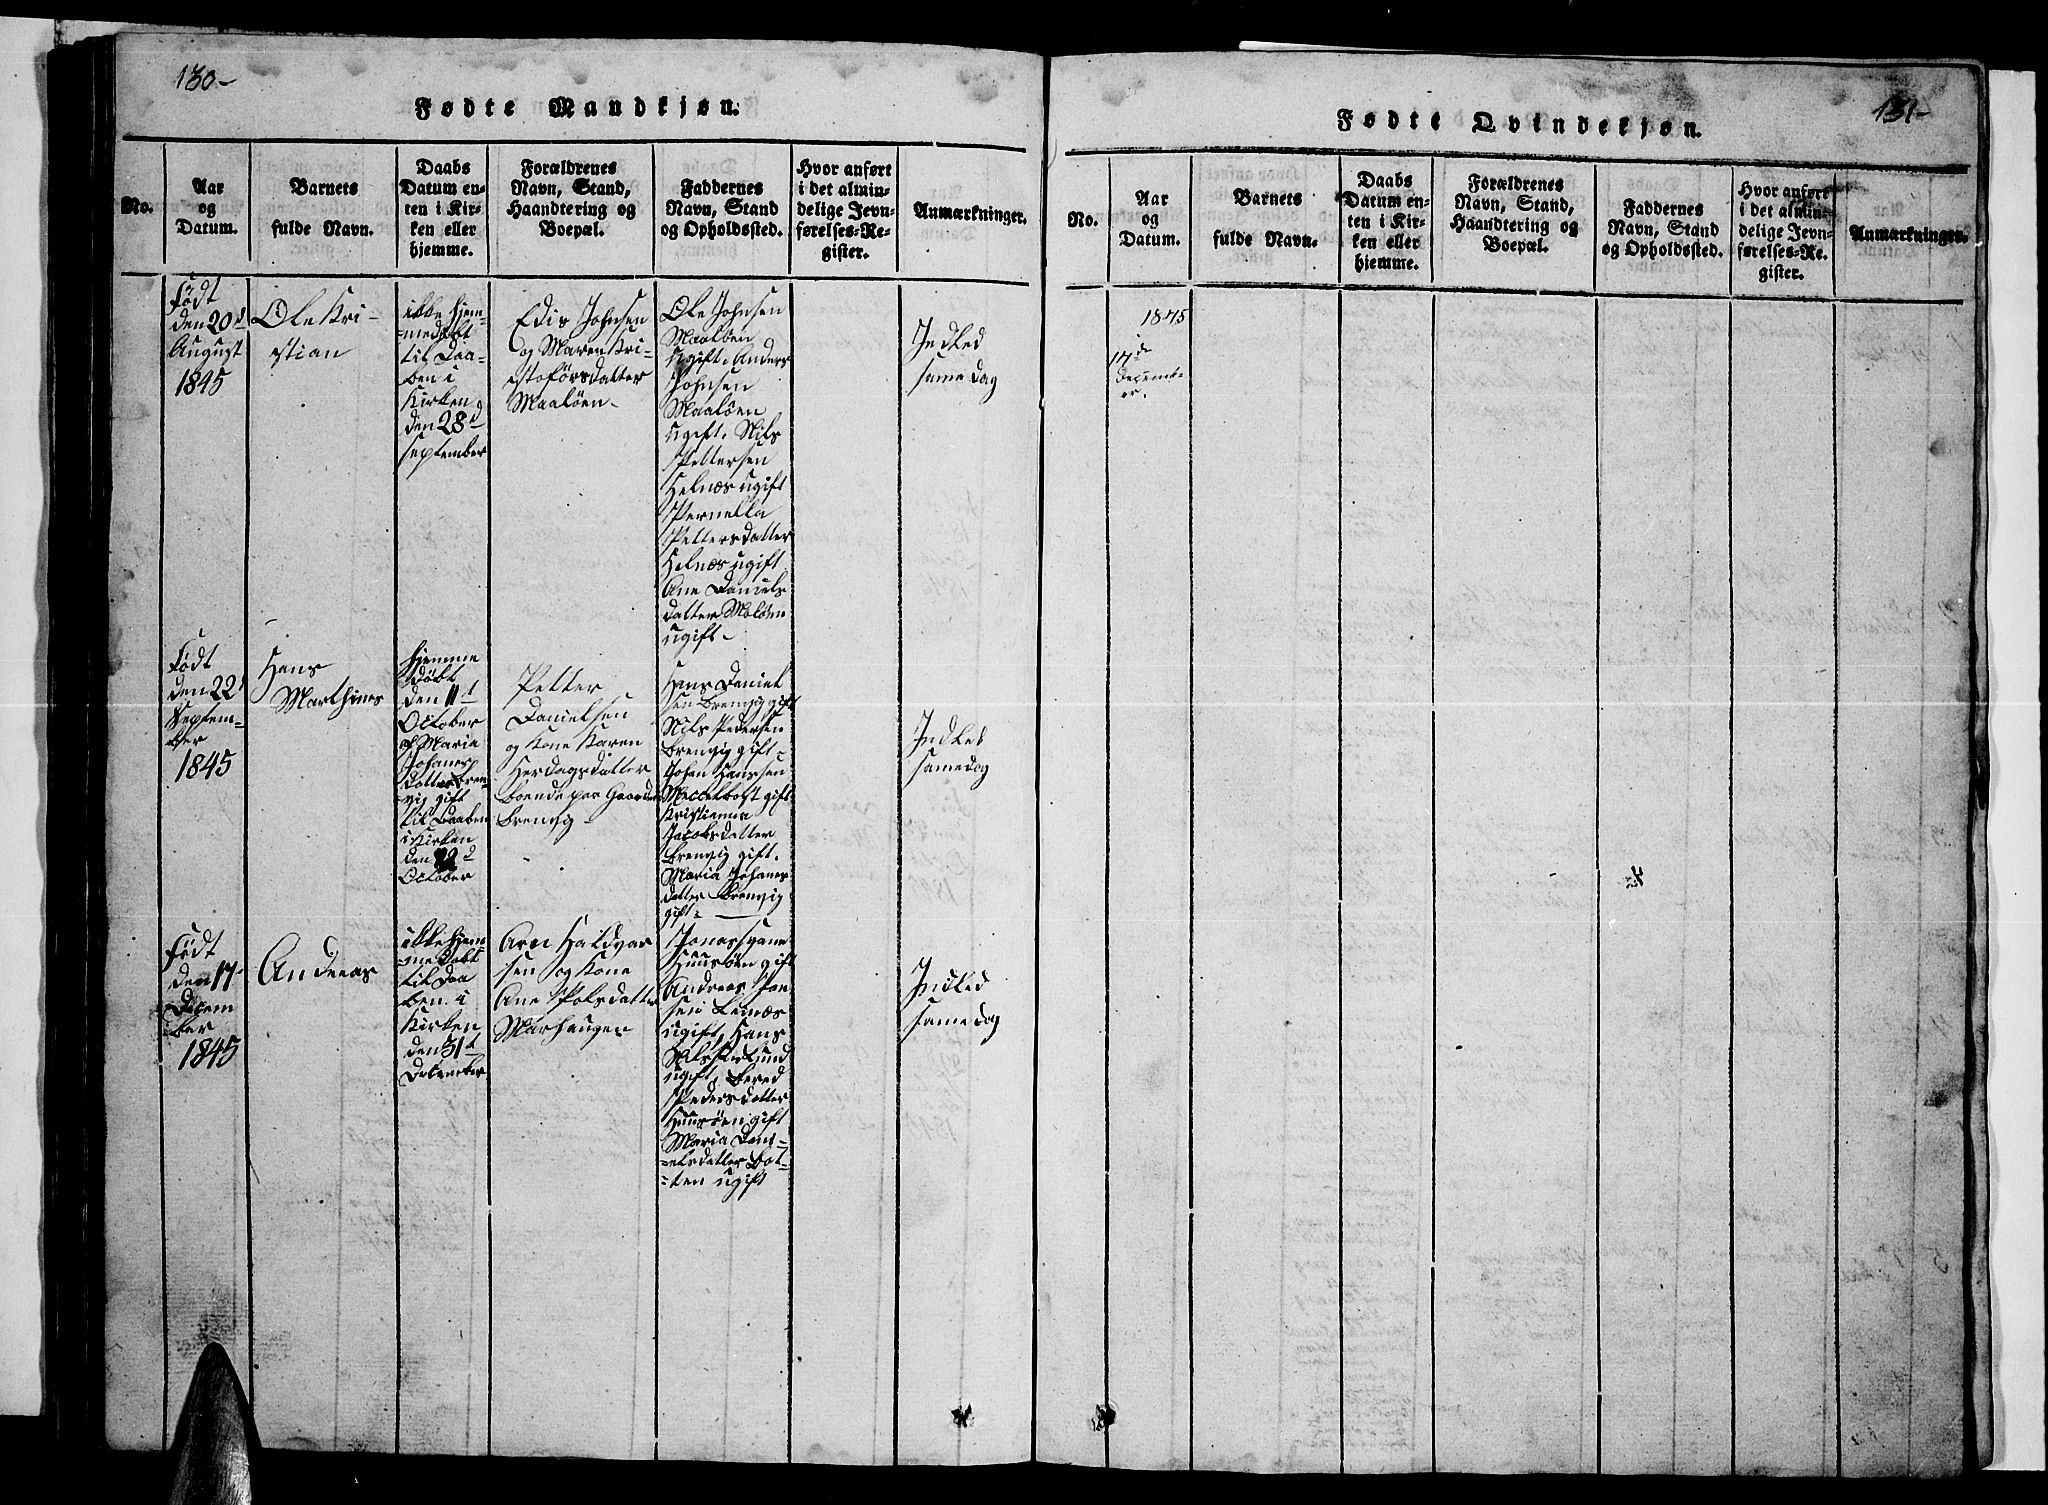 130-
Fødte Mandkjøn.
No.
Aar
og
Datum.
Barnets
fulde Navn.
Daabs
Datum en-
ten i Kir-
ken eller
hjemme.
Forældrenes
Navn, Stand,
Haandtering og
Boepæl.
Faddernes
Navn, Stand
og Opholdssted.
Hvor anført
i det almin-
delige Jevn-
førelses-Re-
gister.
Anmærkninger.
Født
den 20d
August
1845
Ole Kri-
stian
ikke hjem-
medøbt
til Daa-
ben i
Kirken
den 28d
September
Edis Johnsen
og Maren Kri-
stoførsdatter
Maaløen-
Ole Johnsen
Maaløen
ugift. Anders
Johnsen
Maaløen
ugift. Nils
Pettersen
Helnæs ugift
Pernella
Pettersdatter
Helnæs ugift
Ane Daniels
datter Moløen
ugift-
Indled
same dag
Født
den 22d
Septem-
ber
1845
Hans
Marthines
hjemme
døbt
den 11t
October
af Maria
Johanes
datter Bren-
vig gift
til Daaben
i Kirken
den
October
Petter
Danielsen
og Kone Karen
Herdagsdatter
boende paa Gaarden
Brenvig-
Hans Daniel
sen Brenvig gift
Nils Pedersen
Brenvig gift-
Johan Hanssen
gift
Kristianna
Jacobsdatter
Brenvig gift.
Maria Johanes
datter Brenvig
gift-
Indled
samedag
Født
den 17-
Decem
ber
1845
Andreas
ikke hjem-
medøbt
til Daa
ben i
Kirken
den 31t
December
Arn Haldvar
sen og Kone
Ane Polsdatter
Marhaugen
Jonas
Huusøen gift
Andreas
sen Lenæs
ugift, Hans
Nils
ugift, Bered
Pedersdatter
Huusøen gift
Maria Dani-
elsdatter Bot-
ten ugift
Indled
samedag
131-
Fødte Qvindekjøn.
No.
Aar
og
Datum.
Barnets
fulde Navn.
Daabs
Datum en-
ten i Kir-
ken eller
hjemme.
Forældrenes
Navn, Stand,
Haandtering og
Boepæl.
Faddernes
Navn, Stand
og Opholdssted.
Hvor anført
i det almin-
delige Jevn-
førelses-Re-
gister.
Anmærkninger.
1845
17de
Decemb-
er.